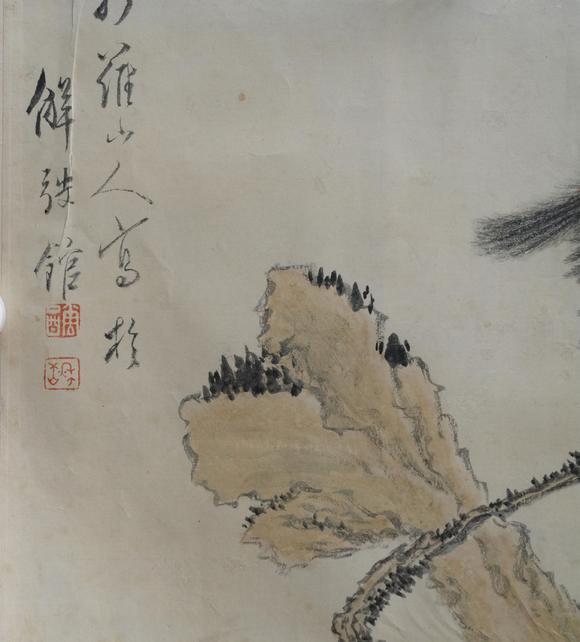 羅山人寫於
解弢館